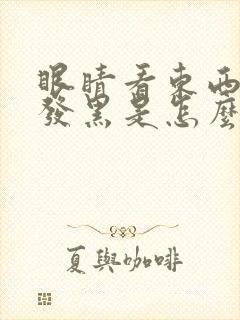 眼睛看東西
發黑是怎麼
夏與咖啡